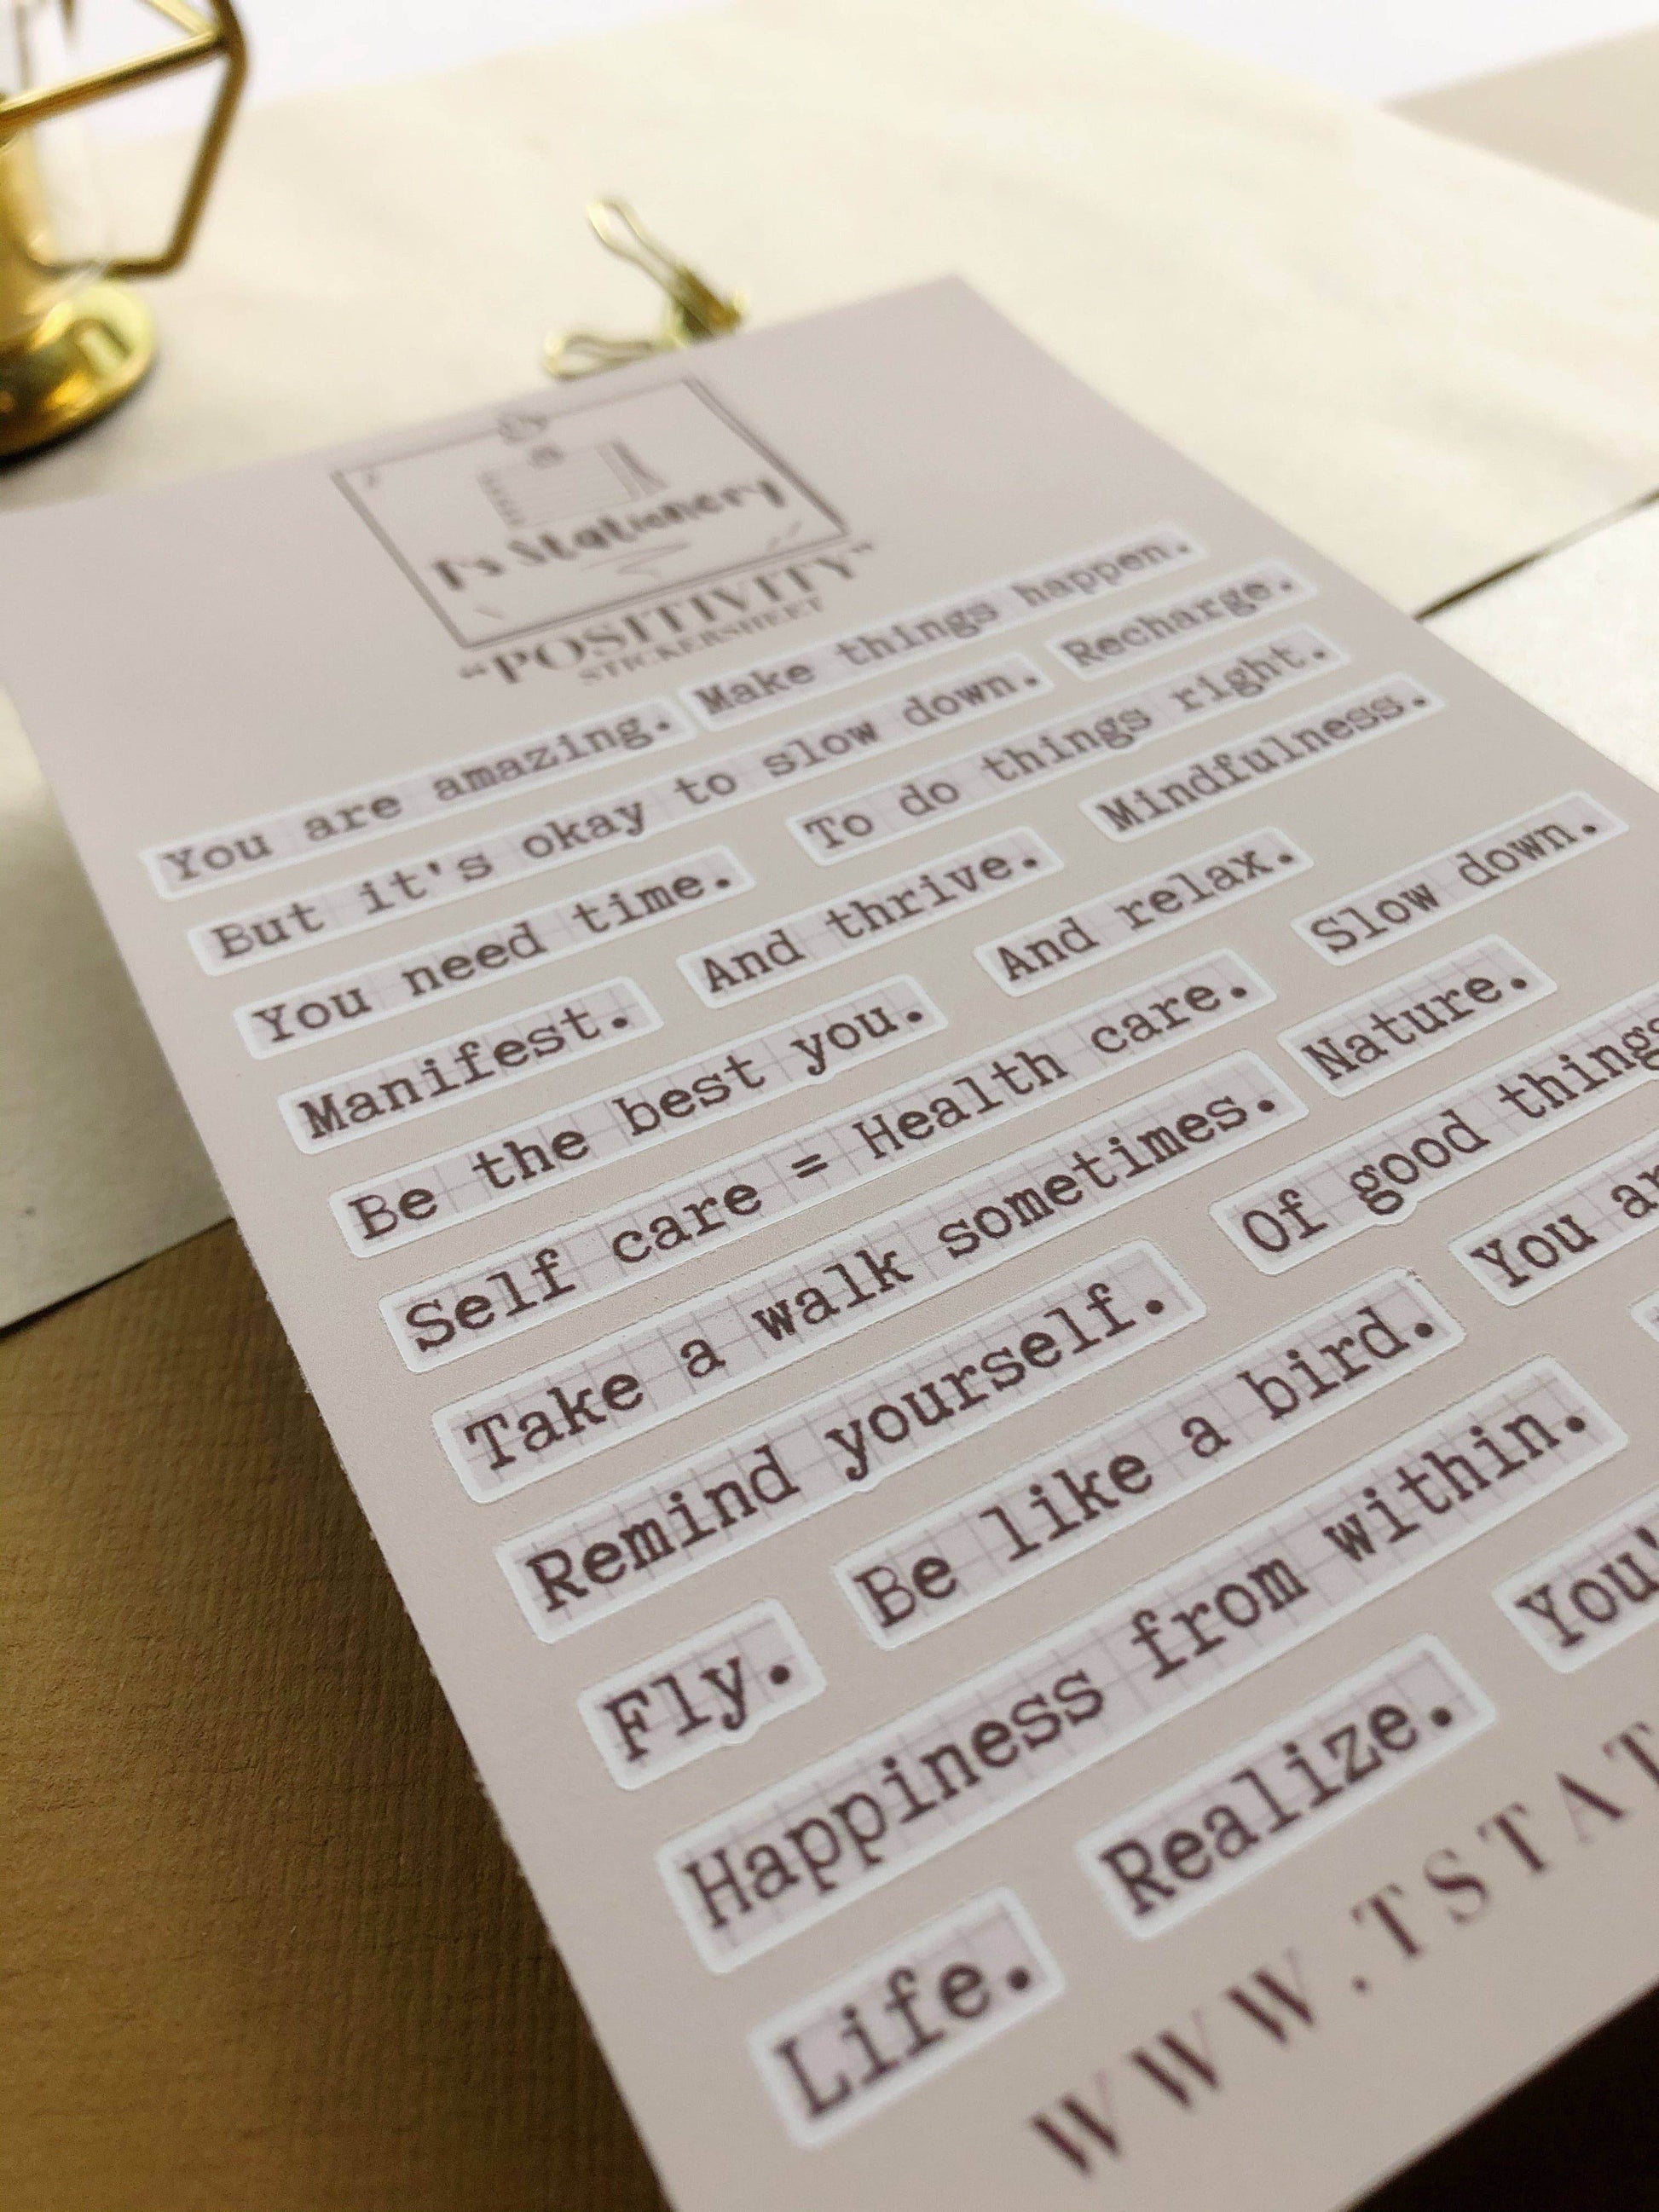 T's Stationery
"POSITIVITY"
STICKERSHEET
You are amazing. Make things happen.
But it's okay to slow down. Recharge.
You need time. To do things right.
Manifest. And thrive. Mindfulness.
Be the best you. And relax.
Self care = Health care. Slow down.
Take a walk sometimes. Nature.
Remind yourself. Of good things
Fly. Be like a bird. You
Happiness from within.
Life. Realize.
WWW.TSTAT